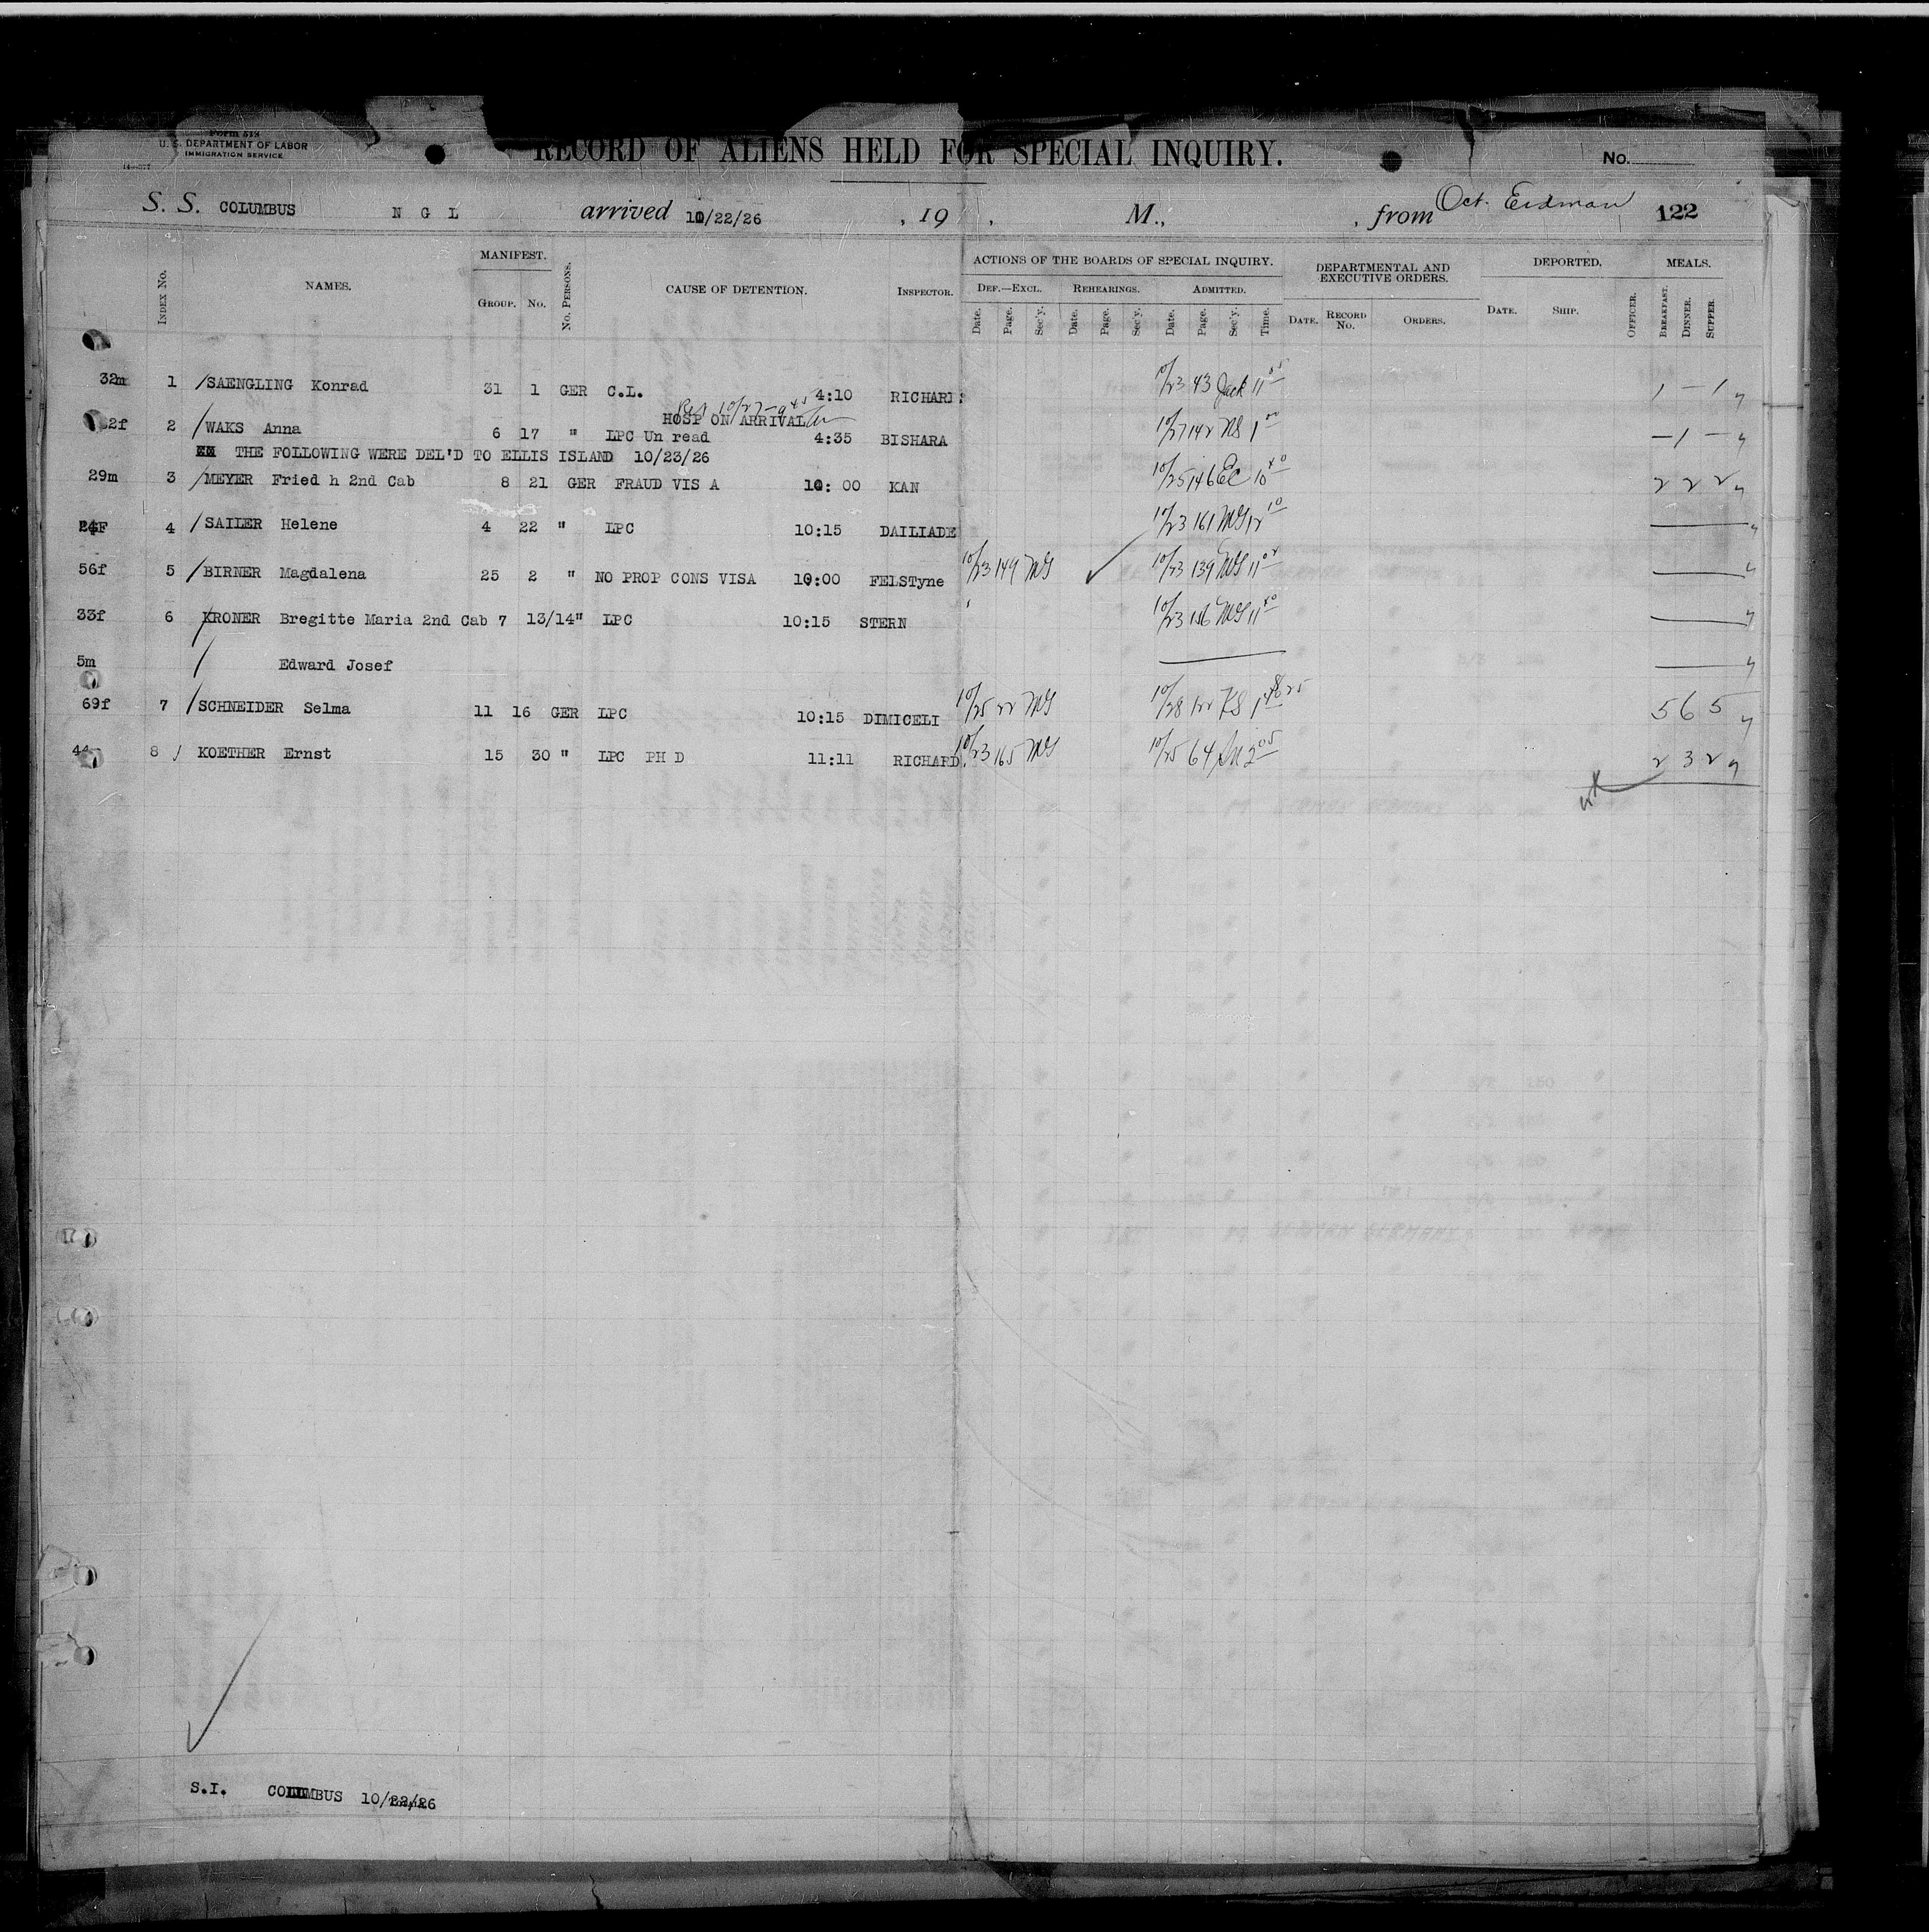 Form 518
U. S. DEPARTMENT OF LABOR
IMMIGRATION SERVICE
RECORD OF ALIENS HELD FOR SPECIAL INQUIRY.
No.
S. S. COLUMBUS N G L arrived 10/22/26 , 19 , M., , from Oct. Erdman 122
INDEX NO. NAMES. MANIFEST. GROUP. NO. NO. PERSONS. CAUSE OF DETENTION. INSPECTOR.
ACTIONS OF THE BOARDS OF SPECIAL INQUIRY. DEPARTMENTAL AND EXECUTIVE ORDERS. DEPORTED. MEALS.
DEF.—EXCL. REHEARINGS. ADMITTED.
Date. Page. Sec'y. Date. Page. Sec'y. Date. Page. Sec'y. Time. DATE. RECORD NO. ORDERS. DATE. SHIP. OFFICER. BREAKFAST. DINNER. SUPPER.
32m 1 /SAENGLING Konrad 31 1 GER C.L. 4:10 RICHARDS 10/23 43 Jack 11 05 1 — 1
HOSP ON ARRIVAL 10/27 - 9 45
2f 2 /WAKS Anna 6 17 " LPC Un read 4:35 BISHARA 10/27 142 1 00 — 1 —
THE FOLLOWING WERE DEL'D TO ELLIS ISLAND 10/23/26
29m 3 /MEYER Fried h 2nd Cab 8 21 GER FRAUD VIS A 10: 00 KAN 10/25 146 EC 10 40 2 2 2
24F 4 /SAILER Helene 4 22 " LPC 10:15 DAILIADE 10/23 161 MG 12 10
56f 5 /BIRNER Magdalena 25 2 " NO PROP CONS VISA 10:00 FELSTyne 10/23 149 MG 10/23 139 MG 11 02
33f 6 KRONER Bregitte Maria 2nd Cab 7 13/14" LPC 10:15 STERN 10/23 156 MG 11 40
5m / Edward Josef
69f 7 /SCHNEIDER Selma 11 16 GER LPC 10:15 DIMICELI 10/25 22 MG 10/28 122 KS 5 6 5
44 8 / KOETHER Ernst 15 30 " LPC PH D 11:11 RICHARD. 10/23 165 MG 10/25 64 2 05 2 3 2
S.I. COLUMBUS 10/22/26